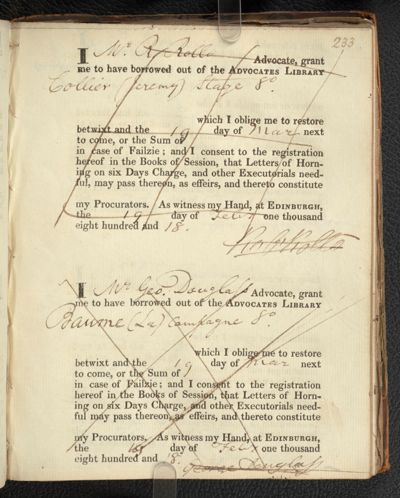 233
I Mr. R. Rollo Advocate, grant
me to have borrowed out of the ADVOCATES LIBRARY
Collier (Jeremy) Stage 8o.
which I oblige me to restore
betwixt and the 19 day of Mar next
to come, or the Sum of
in case of Failzie; and I consent to the registration
hereof in the Books of Session, that Letters of Horn-
ing on six Days Charge, and other Executorials need-
ful, may pass thereon, as effeirs, and thereto constitute
my Procurators. As witness my Hand, at EDINBURGH,
the 19 day of Feby one thousand
eight hundred and 18.
Robt Rollo
I Mr. Geo. Douglass Advocate, grant
me to have borrowed out of the ADVOCATES LIBRARY
Baume (La) Campagne 8o.
which I oblige me to restore
betwixt and the 19 day of Mar next
to come, or the Sum of
in case of Failzie; and I consent to the registration
hereof in the Books of Session, that Letters of Horn-
ing on six Days Charge, and other Executorials need-
ful may pass thereon, as effeirs, and thereto constitute
my Procurators. As witness my Hand, at EDINBURGH,
the 19 day of Feby one thousand
eight hundred and 18.
George Douglass